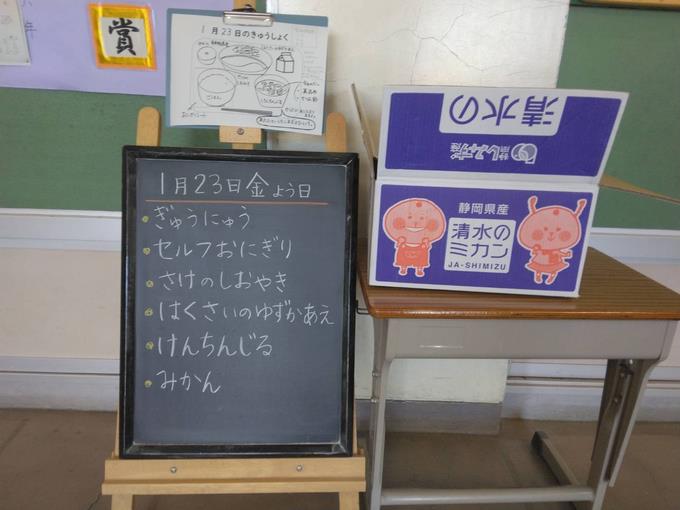 賞
1月23日のきゅうしょく
1月23日金よう日
ぎゅうにゅう
セルフおにぎり
さけのしおやき
はくさいのゆずかあえ
けんちんじる
みかん
清水の
静岡県産
清水の
ミカン
JA-SHIMIZU